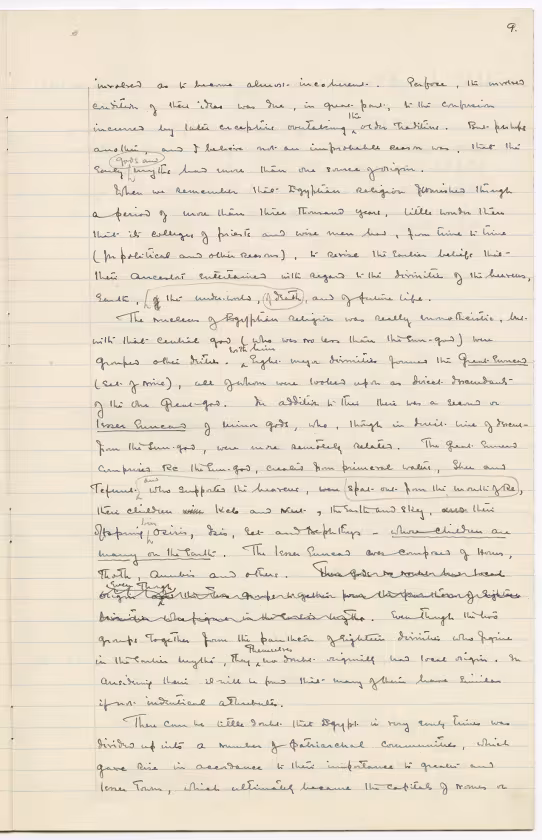 9.
involved as to become almost incoherent. Perforce, the involved
condition of these ideas was due, in great part, to the confusion
incurred by later conceptions overtaking the older traditions. But perhaps
another, and I believe not an improbable reason was, that the
early gods and myths had more than one source of origin.
When we remember that Egyptian religion flourished through
a period of more than three thousand years, little wonder then
that its colleges of priests and wise men had, from time to time
(for political and other reasons), to revise the earlier beliefs that
their ancestors entertained with regard to the divinities of the heavens,
Earth, of the underworld, of death, and of future life.
The nucleus of Egyptian religion was really monotheistic, but
with that central god (who was no less than the Sun-god) were
grouped other deities. with him Eight major divinities formed the Great Ennead
(set of nine), all of whom were looked upon as direct descendants
of the one Great-god. In addition to these there was a second or
lesser Ennead of minor gods, who, though in direct line of descent
from the Sun-god, were more remotely related. The Great Ennead
comprises Re the Sun-god, created from primeval waters, Shu and
Tefnut and who supported the heavens, were spat out from the mouth of Re,
their children Keb and Nut, the Earth and Sky, and their
offspring Osiris, Isis, Set and Nephthys – whose children are
many on the Earth. The lesser Ennead was composed of Horus,
Thoth, Anubis and others.
Even though the two
groups together form the pantheon of eighteen divinities who figure
in the earlier myths, they themselves no doubt originally had local origin. In
considering them it will be found that many of them have similar
if not indentical attributes.
There can be little doubt that Egypt in very early times was
divided up into a number of patriarchal communities, which
gave rise in accordance to their importance to greater and
lesser towns, which ultimately became the capitals of nomes or